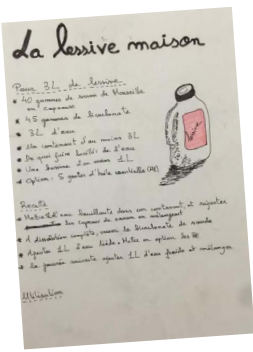 La lessive maison
Pour 3L de lessive
40 grammes de savon de Marseille
en copeaux
45 grammes de bicarbonate
3L d'eau
Un contenant d'au moins 3L
De quoi faire bouillir de l'eau
Une bassine d'au moins 1L
Option : 5 gouttes d'huile essentielle (HE)
Recette
Mettre d'eau bouillante dans son contenant, et rajouter
les copeaux de savon en mélangeant
A dissolution complète, verser le bicarbonate de soude
Ajouter 1L d'eau tiède. Mettre en option les HE
La journée suivante ajouter 1L d'eau froide et mélanger
Utilisation